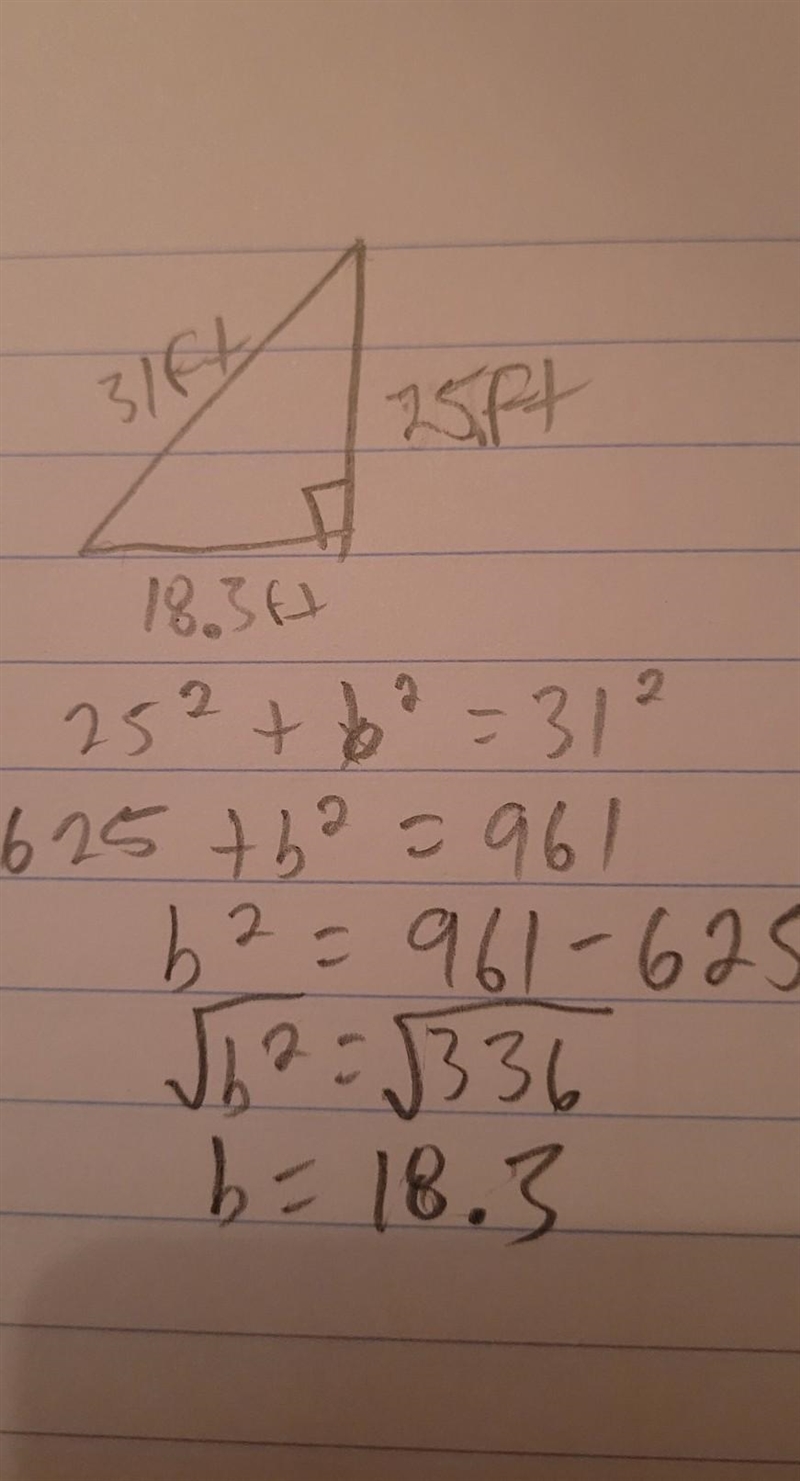 31ft
25ft
18.3ft
25² + b² = 31²
625 + b² = 961
b² = 961 - 625
√b² = √336
b = 18.3